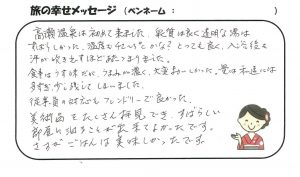 旅の幸せメッセージ（ペンネーム：　　　　　）
高瀬温泉は初めて来ました。泉質は良く透明な湯は
すばらしかった。温度も41℃かな？とっても良く、入浴後も
汗が吹き出すほど
食事はうす味だが、つまみが濃く、大変おいしかった。量は私達には
多すぎ、少し残してしまいました。
従業員の対応もフレンドリーで良かった。
美術画をたくさん拝見でき、すばらしい
部屋に泊ることが出来てよかったです。
さすがごはんは美味しかったです。